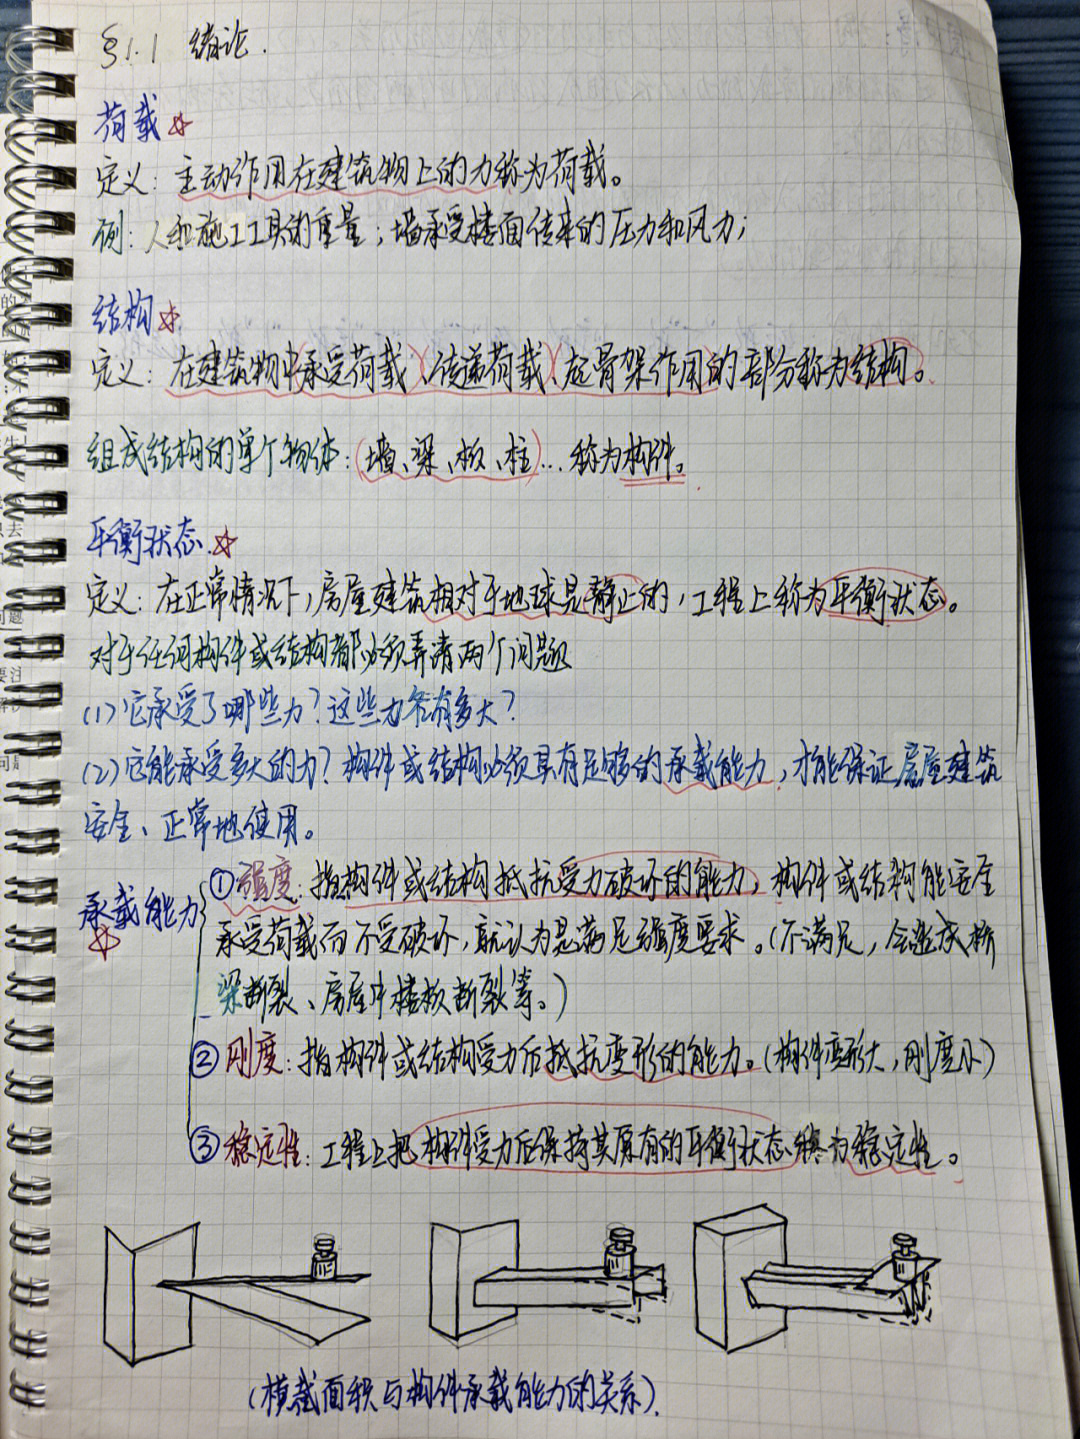 §1.1 绪论.
荷载☆
定义：主动作用在建筑物上的力称为荷载。
例：人和施工工具的重量；墙承受楼面传来的压力和风力；
结构☆
定义：在建筑物中承受荷载、传递荷载、起骨架作用的部分称为结构。
组成结构的单个物体：(墙、梁、板、柱)…称为构件。
平衡状态.☆
定义：在正常情况下，房屋建筑相对于地球是静止的，工程上称为平衡状态。
对于任何构件或结构都必须弄清两个问题
(1)它承受了哪些力？这些力各有多大？
(2)它能承受多大的力？构件或结构必须具有足够的承载能力，才能保证房屋建筑
安全、正常地使用。
承载能力☆
①强度：指构件或结构抵抗受力破坏的能力，构件或结构能安全
承受荷载而不受破坏，就认为是满足强度要求。(不满足，会造成桥
梁断裂、房屋中楼板断裂等。)
②刚度：指构件或结构受力后抵抗变形的能力。(构件变形大，刚度小)
③稳定性：工程上把构件受力后保持其原有的平衡状态称为稳定性。
(横截面积与构件承载能力的关系).